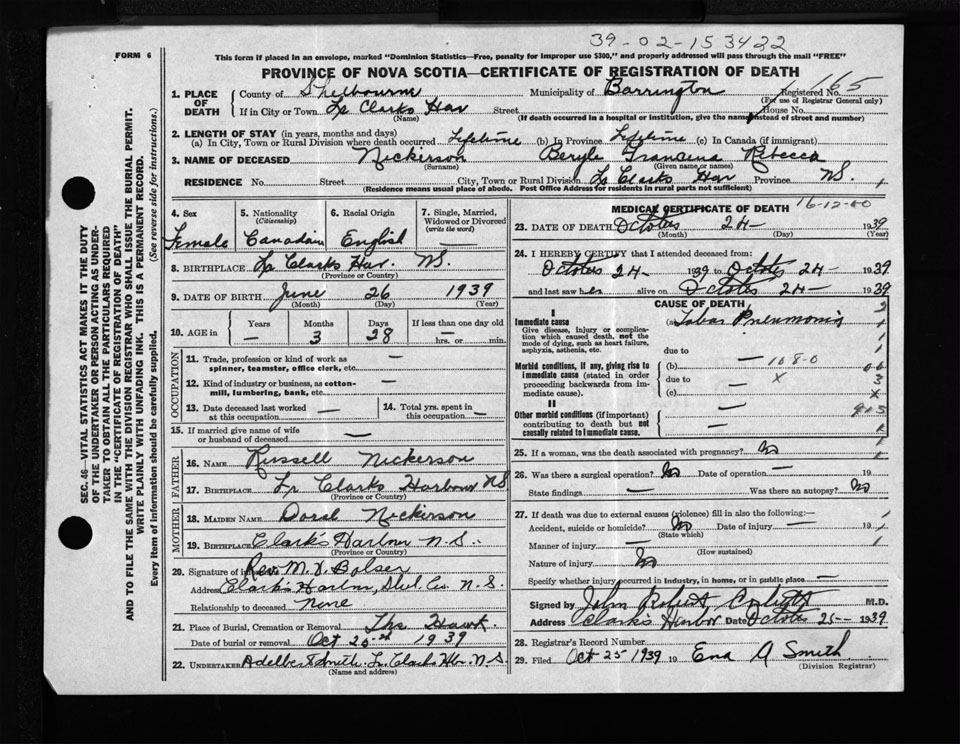 39-02-153422
FORM 6
This form if placed in an envelope, marked "Dominion Statistics—Free, penalty for improper use $300," and properly addressed will pass through the mail "FREE"
PROVINCE OF NOVA SCOTIA—CERTIFICATE OF REGISTRATION OF DEATH
165
1. PLACE OF DEATH
County of Shelbourne Municipality of Barrington Registered No.
(For use of Registrar General only)
If in City or Town Lr Clarks Har Street House No.
(Name) (If death occurred in a hospital or institution, give the name instead of street and number)
2. LENGTH OF STAY (in years, months and days)
(a) In City, Town or Rural Division where death occurred Lifetime (b) In Province Lifetime (c) In Canada (if immigrant)
3. NAME OF DECEASED Nickerson Beryle Francena Rebecca
(Surname) (Given name or names)
RESIDENCE No. Street City, Town or Rural Division Lr Clarks Har Province N.S.
(Residence means usual place of abode. Post Office Address for residents in rural parts not sufficient)
4. Sex 5. Nationality (Citizenship) 6. Racial Origin 7. Single, Married, Widowed or Divorced (write the word)
Female Canadian English —
8. BIRTHPLACE Lr Clarks Har. N.S.
(Province or Country)
9. DATE OF BIRTH June 26 1939
(Month) (Day) (Year)
10. AGE in Years Months Days If less than one day old
— 3 28 — hrs. or min.
OCCUPATION
11. Trade, profession or kind of work as spinner, teamster, office clerk, etc. —
12. Kind of industry or business, as cotton-mill, lumbering, bank, etc. —
13. Date deceased last worked at this occupation — 14. Total yrs. spent in this occupation —
15. If married give name of wife or husband of deceased —
FATHER
16. NAME Russell Nickerson
17. BIRTHPLACE Lr Clarks Harbour N.S
(Province or Country)
MOTHER
18. MAIDEN NAME Nickerson
19. BIRTHPLACE Clark's Harbour N.S.
(Province or Country)
20. Signature of Rev. M. Bolser
Address Clark's Harbor, Shel Co. N.S.
Relationship to deceased None
21. Place of Burial, Cremation or Removal The Hawk
Date of burial or removal Oct 25th 1939
22. UNDERTAKER Adelbert Smith. Lr. Clarks Hbr. N.S.
(Name and address)
MEDICAL CERTIFICATE OF DEATH 16-12-40
23. DATE OF DEATH October 24- 1939
(Month) (Day) (Year)
24. I HEREBY CERTIFY that I attended deceased from:
October 24- 1939 to October 24- 1939
and last saw her alive on October 24- 1939
CAUSE OF DEATH
I
Immediate cause (a) Lobar Pneumonia
Give disease, injury or complication which caused death, not the mode of dying, such as heart failure, asphyxia, asthenia, etc.
due to
Morbid conditions, if any, giving rise to immediate cause (stated in order proceeding backwards from immediate cause).
(b) — 108-0
due to — x
(c)
II
Other morbid conditions (if important) contributing to death but not causally related to immediate cause.
—
25. If a woman, was the death associated with pregnancy? No
26. Was there a surgical operation? No Date of operation — 19
State findings — Was there an autopsy? No
27. If death was due to external causes (violence) fill in also the following:
Accident, suicide or homicide? No Date of injury — 19
(State which)
Manner of injury —
(How sustained)
Nature of injury No
Specify whether injury occurred in industry, in home, or in public place —
Signed by John Robert M.D.
Address Clark's Harbor Date October 25- 1939
28. Registrar's Record Number
29. Filed Oct 25 1939 19 Ena A Smith
(Division Registrar)
SEC. 46—VITAL STATISTICS ACT MAKES IT THE DUTY
OF THE UNDERTAKER OR PERSON ACTING AS UNDERTAKER TO OBTAIN ALL THE PARTICULARS REQUIRED
IN THE "CERTIFICATE OF REGISTRATION OF DEATH"
AND TO FILE THE SAME WITH THE DIVISION REGISTRAR WHO SHALL ISSUE THE BURIAL PERMIT.
WRITE PLAINLY WITH UNFADING INK. THIS IS A PERMANENT RECORD.
Every item of information should be carefully supplied. (See reverse side for instructions.)